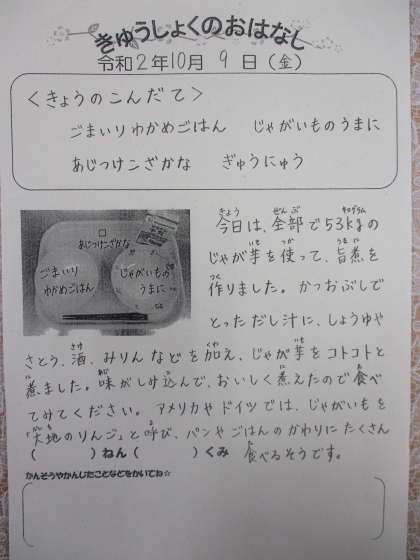 きゅうしょくのおはなし
令和2年10月9日(金)
<きょうのこんだて>
ごまいりわかめごはん じゃがいものうまに
あじつけこざかな ぎゅうにゅう
あじつけこざかな
ごまいり
わかめごはん
じゃがいもの
うまに
今日は、全部で53kgの
じゃが芋を使って、旨煮を
作りました。かつおぶしで
とっただし汁に、しょうゆや
さとう、酒、みりんなどを加え、じゃが芋をコトコトと
煮ました。味がしみ込んで、おいしく煮えたので食べ
てみてください。アメリカやドイツでは、じゃがいもを
「大地のりんご」と呼び、パンやごはんのかわりにたくさん
( )ねん( )くみ 食べるそうです。
かんそうやかんじたことなどをかいてね☆